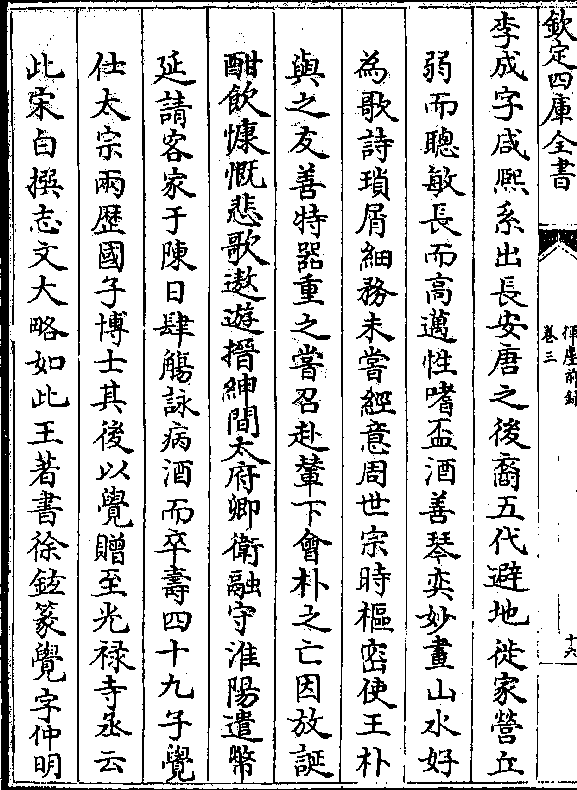 欽定四庫全書
揮麈前録
卷三
十六
李成字咸熙系出長安唐之後裔五代避地徙家營丘
弱而聰敏長而高邁性嗜盃酒善琴奕妙畫山水好
為歌詩瑣屑細務未嘗經意周世宗時樞密使王朴
與之友善特器重之嘗召赴輦下會朴之亡因放誕
酣飲慷慨悲歌遨遊搢紳間太府卿衛融守淮陽遣幣
延請客家于陳日肆觴詠病酒而卒壽四十九子覺
仕太宗兩歴國子博士其後以覺贈至光禄寺丞云
此宋白撰志文大略如此王著書徐鉉篆覺字仲明